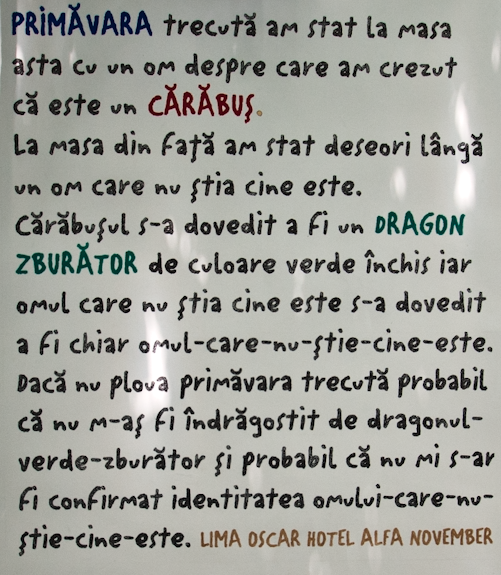 PRIMĂVARA trecută am stat la masa
asta cu un om despre care am crezut
că este un CĂRĂBUŞ.
La masa din faţă am stat deseori lângă
un om care nu ştia cine este.
Cărăbuşul s-a dovedit a fi un DRAGON
ZBURĂTOR de culoare verde închis iar
omul care nu ştia cine este s-a dovedit
a fi chiar omul-care-nu-ştie-cine-este.
Dacă nu ploua primăvara trecută probabil
că nu m-aş fi îndrăgostit de dragonul-
verde-zburător şi probabil că nu mi s-ar
fi confirmat identitatea omului-care-nu-
ştie-cine-este. LIMA OSCAR HOTEL ALFA NOVEMBER